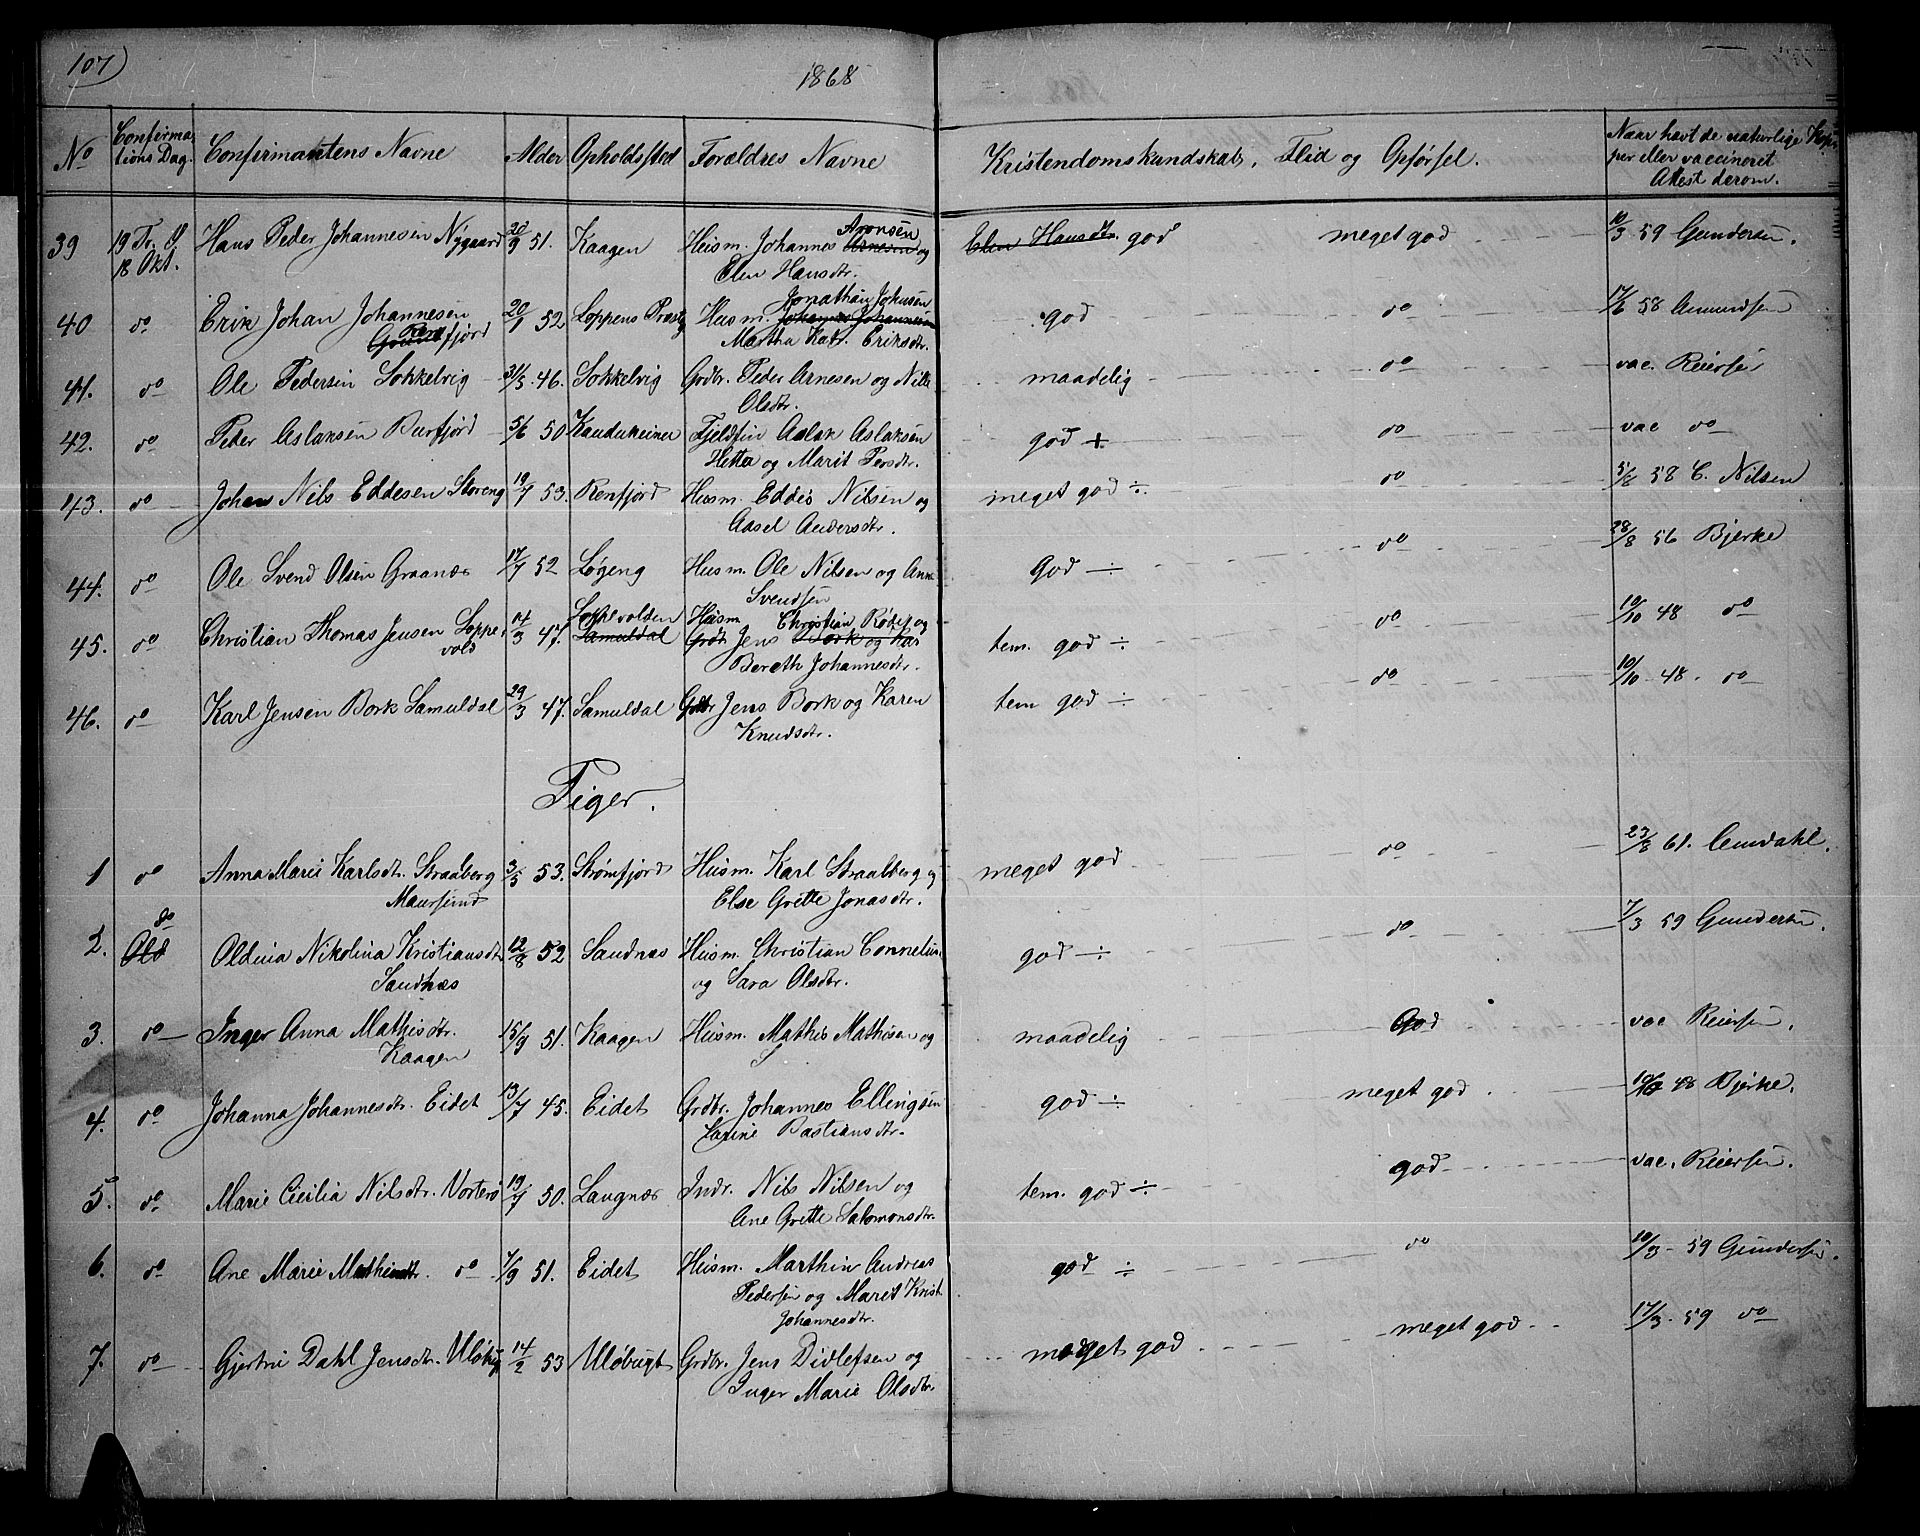 107)
1868
No
Confirma-
tions Dag.
Confirmantens Navne
Alder
Opholdssted
Forældres Navne
Kristendomskundskab, Flid og Opførsel.
Naar havt de naturlige Kop-
per eller vaccineret
Attest derom.
39 19 Tr. 18 Okt. Hans Peder Johannesen Nygaard 20/9 51. Kaagen Husm. Johannes Aronsen Arnesen og Elen Hansdtr. god meget god 10/3 59 Gundersen.
Elen Hansdtr.
40 do Erik Johan Johannesen 20/1 52 Loppens Præstg Husm. Jonathan Johnsen god do 17/6 58 Amundsen
fjord Johannes Johannesen
Martha Kat. Eriksdtr.
41. do Ole Pedersen Sokkelvig 31/3 46. Sokkelvig Grdbr. Peder Arnesen og Nille maadelig do vac. Reiersen
Olsdtr.
42. do Peder Aslaksen Burfjord 5/6 50 Kaudukeiner Fjeldfin Aslak Aslaksen god + do vac do
Hetta og Marit Persdtr.
43. do Johan Nils Eddesen Storeng 19/7 53. Renfjord Husm. Eddis Nilsen og meget god ÷ do 5/8 58 C. Nilsen
Aasel Andersdtr.
44. do Ole Svend Olsen Graanæs 17/7 52 Løgeng Husm. Ole Nilsen og Ane god ÷ do 28/8 56 Bjerke
Svendsen
45. do Christian Thomas Jensen Loppe- 14/3 47. Loppevolden Husm Christian Rødej og tem. god ÷ do 10/10 48 do
vold Samuldal Grdb Jens Bork og Kar
Bereth Johannesdtr.
46. do Karl Jensen Bork Samuldal 29/3 47. Samuldal Grdbr Jens Bork og Karen tem god ÷ do 10/10 48. do
Knudsdtr.
Piger.
1 do Anna Marie Karlsdtr. Straaberg 3/5 53. Strømfjord Husm. Karl Straalberg og meget god do 23/8 61. Aundahl.
Maursund Else Grette Jonasdtr.
2. do Old Oldina Nikolina Kristiansdtr 12/8 52 Sandnæs Husm. Christian Connelius. god ÷ do 7/3 59 Gundersen.
Sandnæs og Sara Olsdtr.
3. do Inger Anna Mathisdtr. 15/9 51. Kaagen Husm. Mathis Mathisen og maadelig God vac Reiersen.
Kaagen S
4. do Johanna Johannesdtr. Eidet 13/7 45. Eidet Grdbr. Johannes Ellingsen god ÷ meget god 10/10 48 Bjerke.
Karine Bastiansdtr.
5. do Marie Cicilia Nilsdtr. Vorterø 19/7 50. Laugnæs Indr. Nils Nilsen og tem. god ÷ god vac. Reiersen.
Ane Grette Salomonsdtr.
6. do Ane Marie Mathinsdtr. do 7/9 51. Eidet Husm. Marthin Andreas god ÷ do 10/3 59 Gundersen.
Pedersen og Maret Krist.
Johannesdtr.
7. do Gjertru Dahl Jensdtr. Uløbug 14/2 53 Uløbugt Grdbr. Jens Didlefsen og meget god meget god 17/3 59 do
Inger Marie Olsdtr.